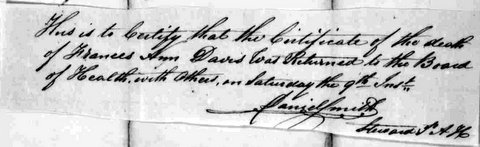 This is to Certify that the Certificate of the death
of Frances Ann Davis Was Returned to the Board
of Health, with others, on Saturday the 9th Inst.
Daniel Smith
Steward